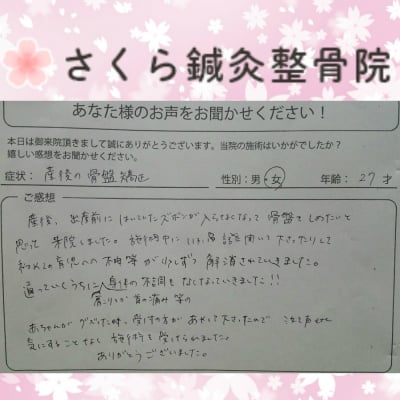 さくら鍼灸整骨院
あなた様のお声をお聞かせください！
本日は御来院頂きまして誠にありがとうございます。当院の施術はいかがでしたか？
嬉しい感想をお聞かせください。
症状: 産後の骨盤矯正 性別: 男・女 年齢: 27才
ご感想
産後、出産前にはいていたズボンが入らなくなって骨盤をしめたいと
思って来院しました。施術中にいろいろ話聞いて下さったりして
初めての育児への不安等が少しずつ解消されていきました。
通っていくうちに身体の不調もなくなっていきました!!
肩こりとか首の痛み等の
赤ちゃんがグズった時、受付の方があやして下さったので 泣き声とか
気にすることなく施術を受けられました。
ありがとうございました。